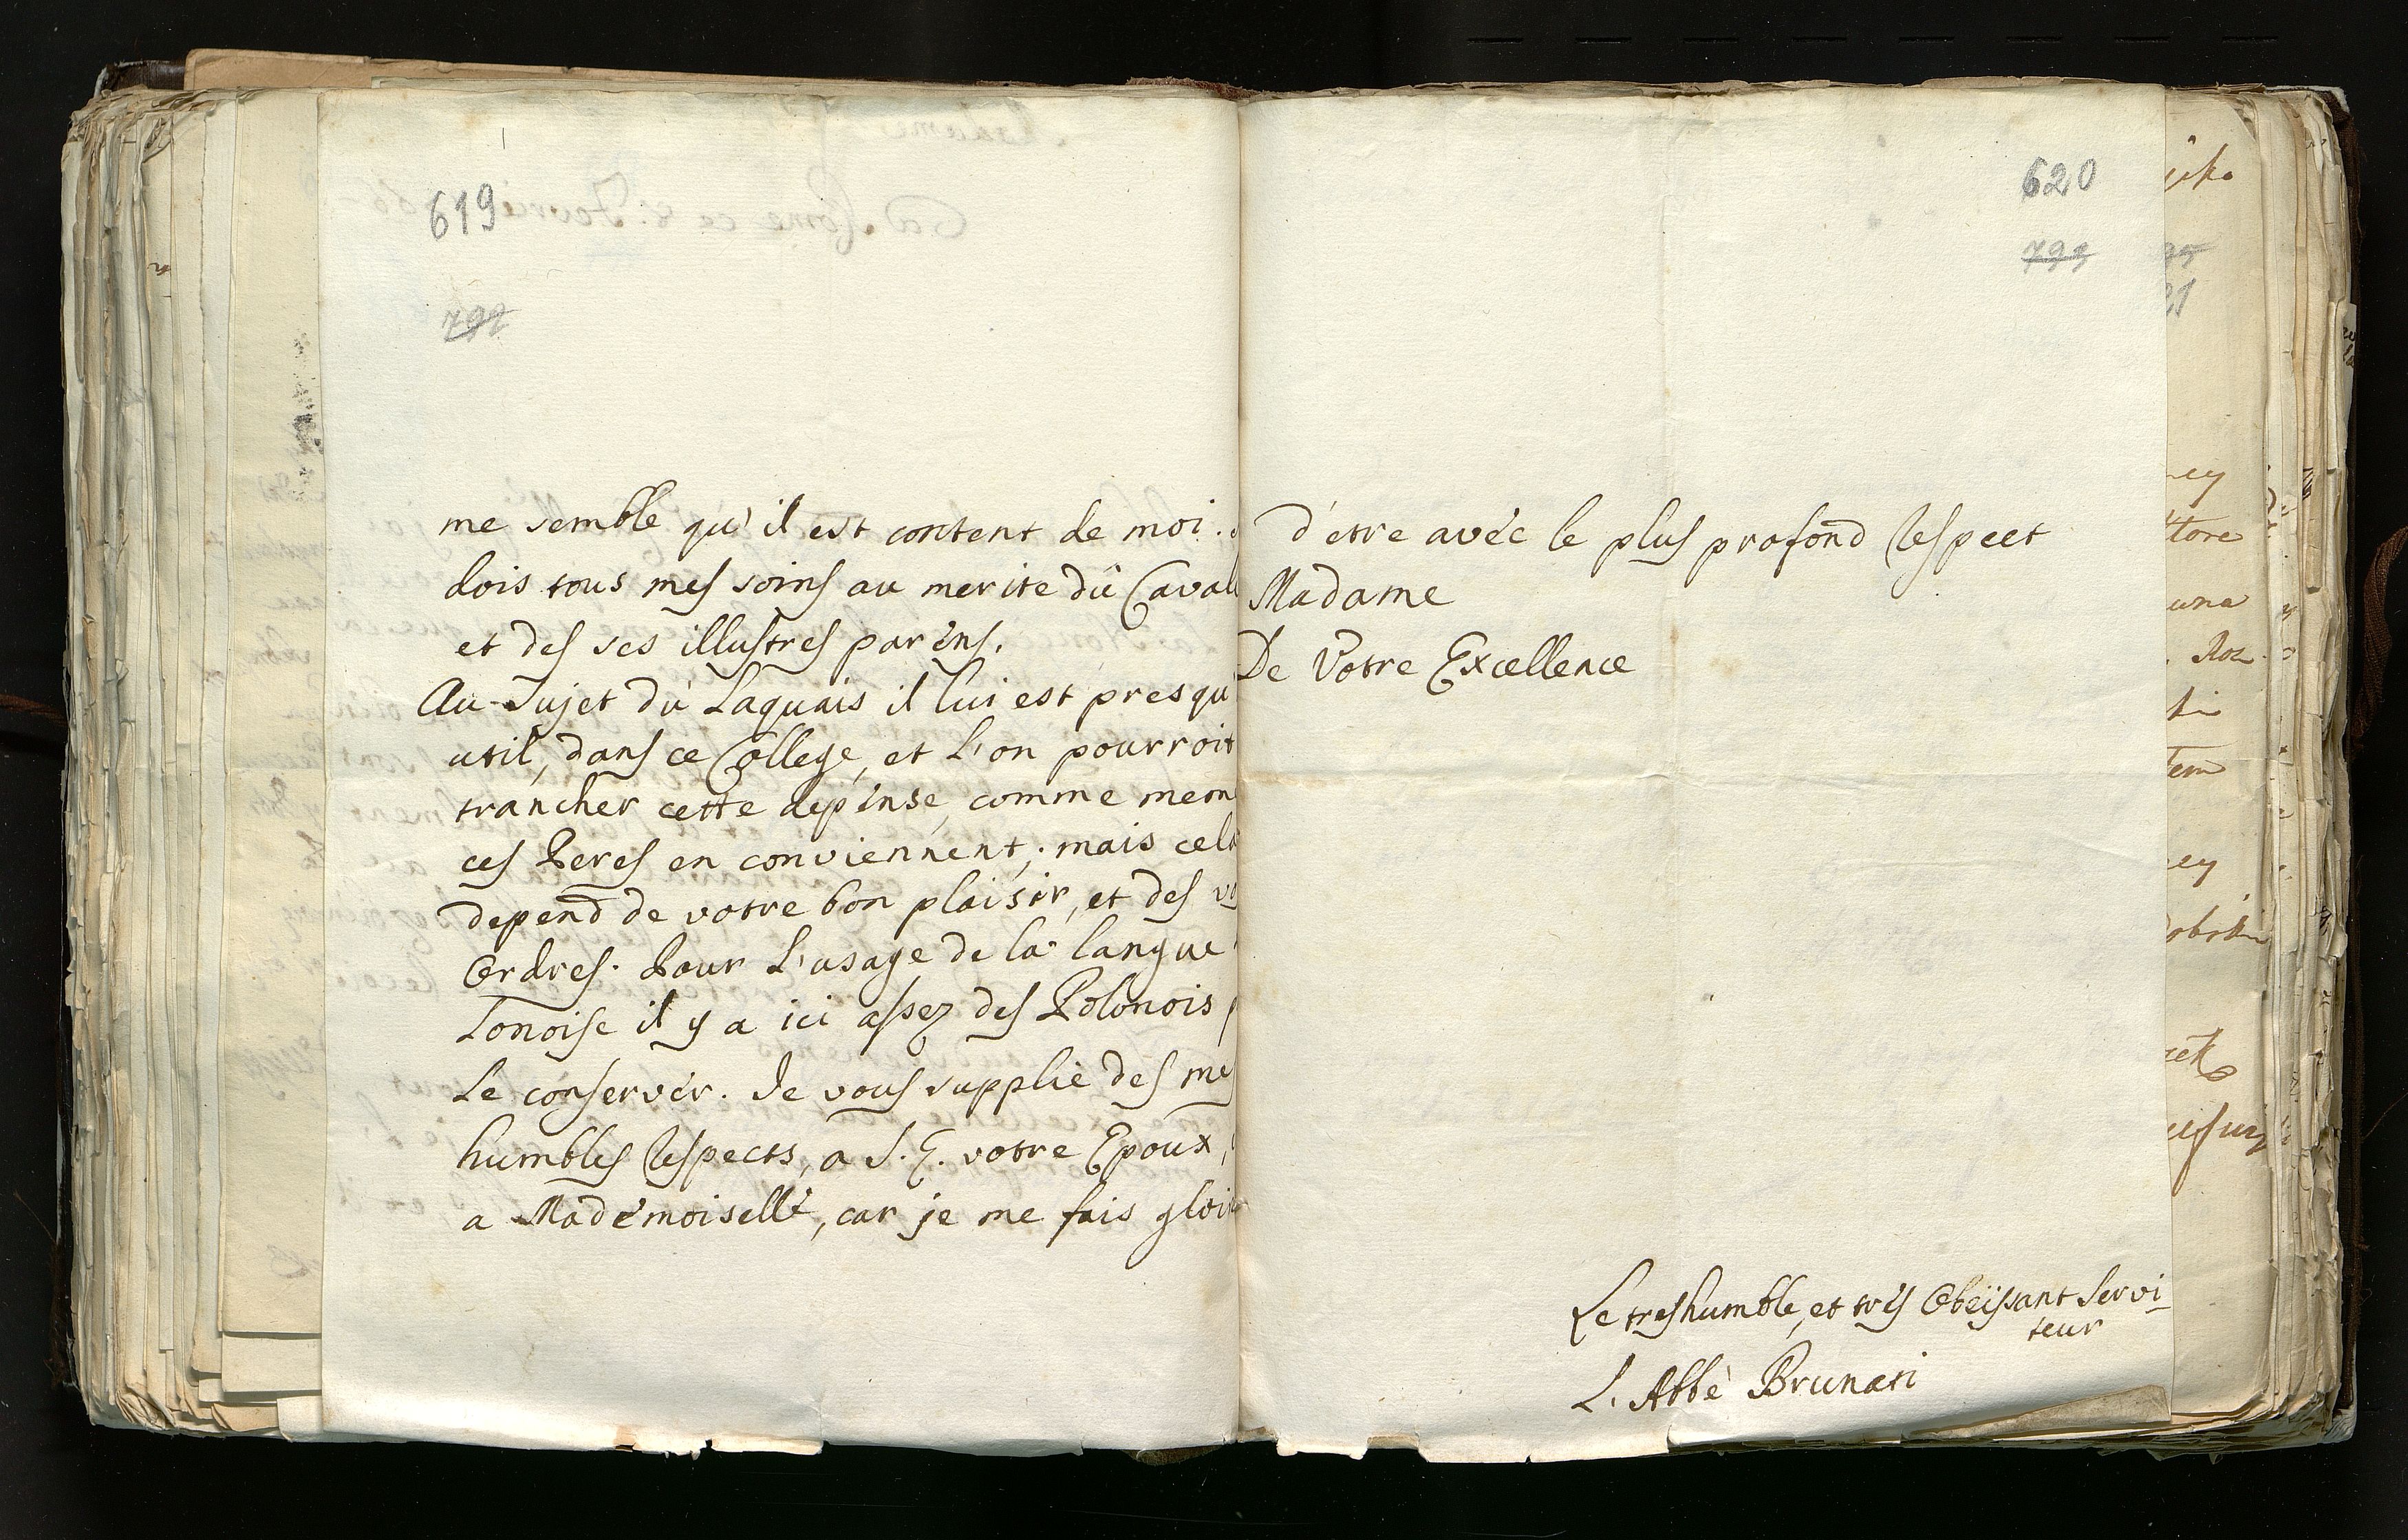 619
792
me semble qu'il est content de moi.
dois tous mes soins au merite dû Caval
et des ses illustres parens.
Au Sujet dù Laquais il lui est presqu
util, dans ce College, et L'on pourroit
trancher cette depense, comme mem
ces Peres en conviennent; mais cela
depend de votre bon plaisir, et des vo
Ordres. Pour L'usage de la langue
Lonoise il y a ici assez des Polonois
Le conserver. Je vous supplie des mes
humbles respects, a S. E. votre Epoux,
a Mademoiselle, car je me fais gloir
620
793
d'etre avec le plus profond respect
Madame
De Votre Excellence
Le tres humble, et tres Obeissant Servi-
teur
L. Abbè Brunati